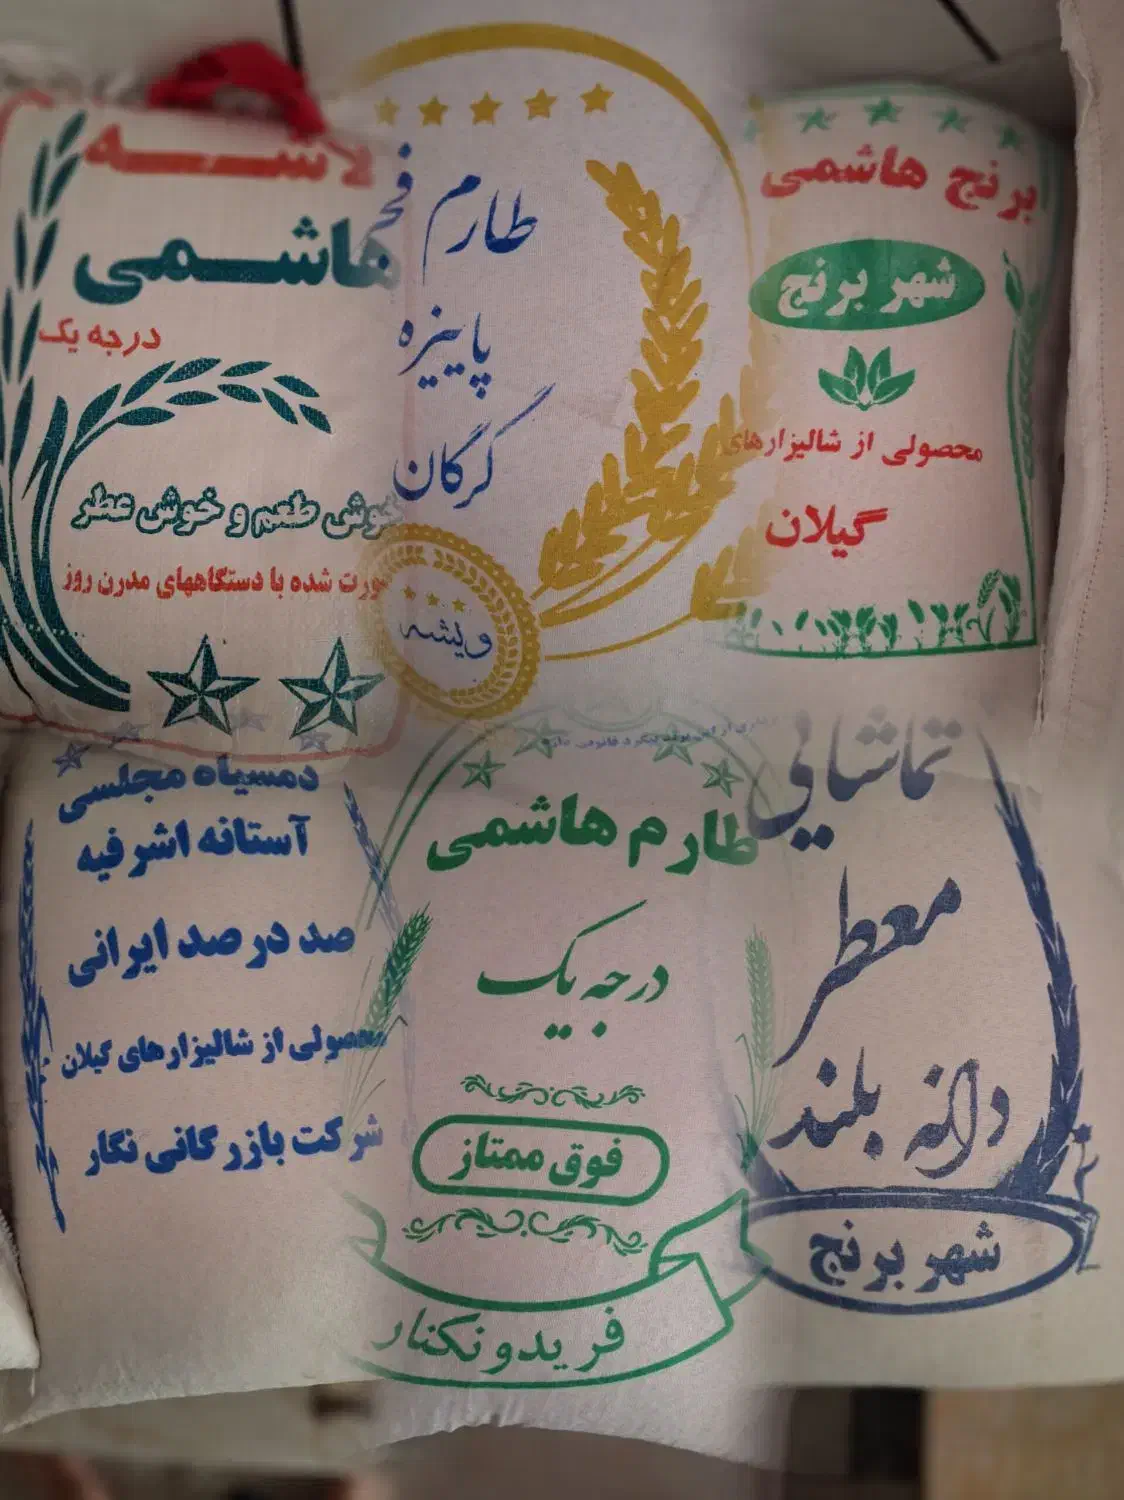 لاشه
هاشمی
درجه یک
خوش طعم و خوش عطر
سورت شده با دستگاههای مدرن روز
طارم فجر
پاییزه
گرگان
ویشه
برنج هاشمی
شهر برنج
محصولی از شالیزارهای
گیلان
دمسیاه مجلسی
آستانه اشرفیه
صد در صد ایرانی
محصولی از شالیزارهای گیلان
شرکت بازرگانی نگار
طارم هاشمی
درجه یک
فوق ممتاز
فریدونکنار
تماشایی
معطر
دانه بلند
شهر برنج